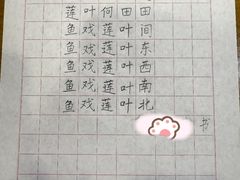 莲叶何田田
鱼戏莲叶间
鱼戏莲叶东
鱼戏莲叶西
鱼戏莲叶南
鱼戏莲叶北
书